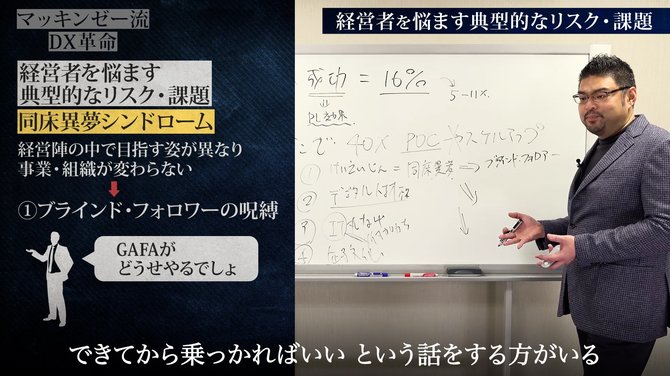 マッキンゼー流
DX革命
経営者を悩ます
典型的なリスク・課題
同床異夢シンドローム
経営陣の中で目指す姿が異なり
事業・組織が変わらない
①ブラインド・フォロワーの呪縛
GAFAが
どうせやるでしょ
経営者を悩ます典型的なリスク・課題
成功 = 16%
5-11%
PL効果
40% POC やスケールアップ
① けいえいじん = 同床異夢 ⇒ ブラインド・フォロアー
② デジタル人材
③
④
できてから乗っかればいい という話をする方がいる